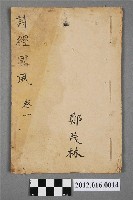 詩經國風 卷一
鄭茂林
2012.016.0014